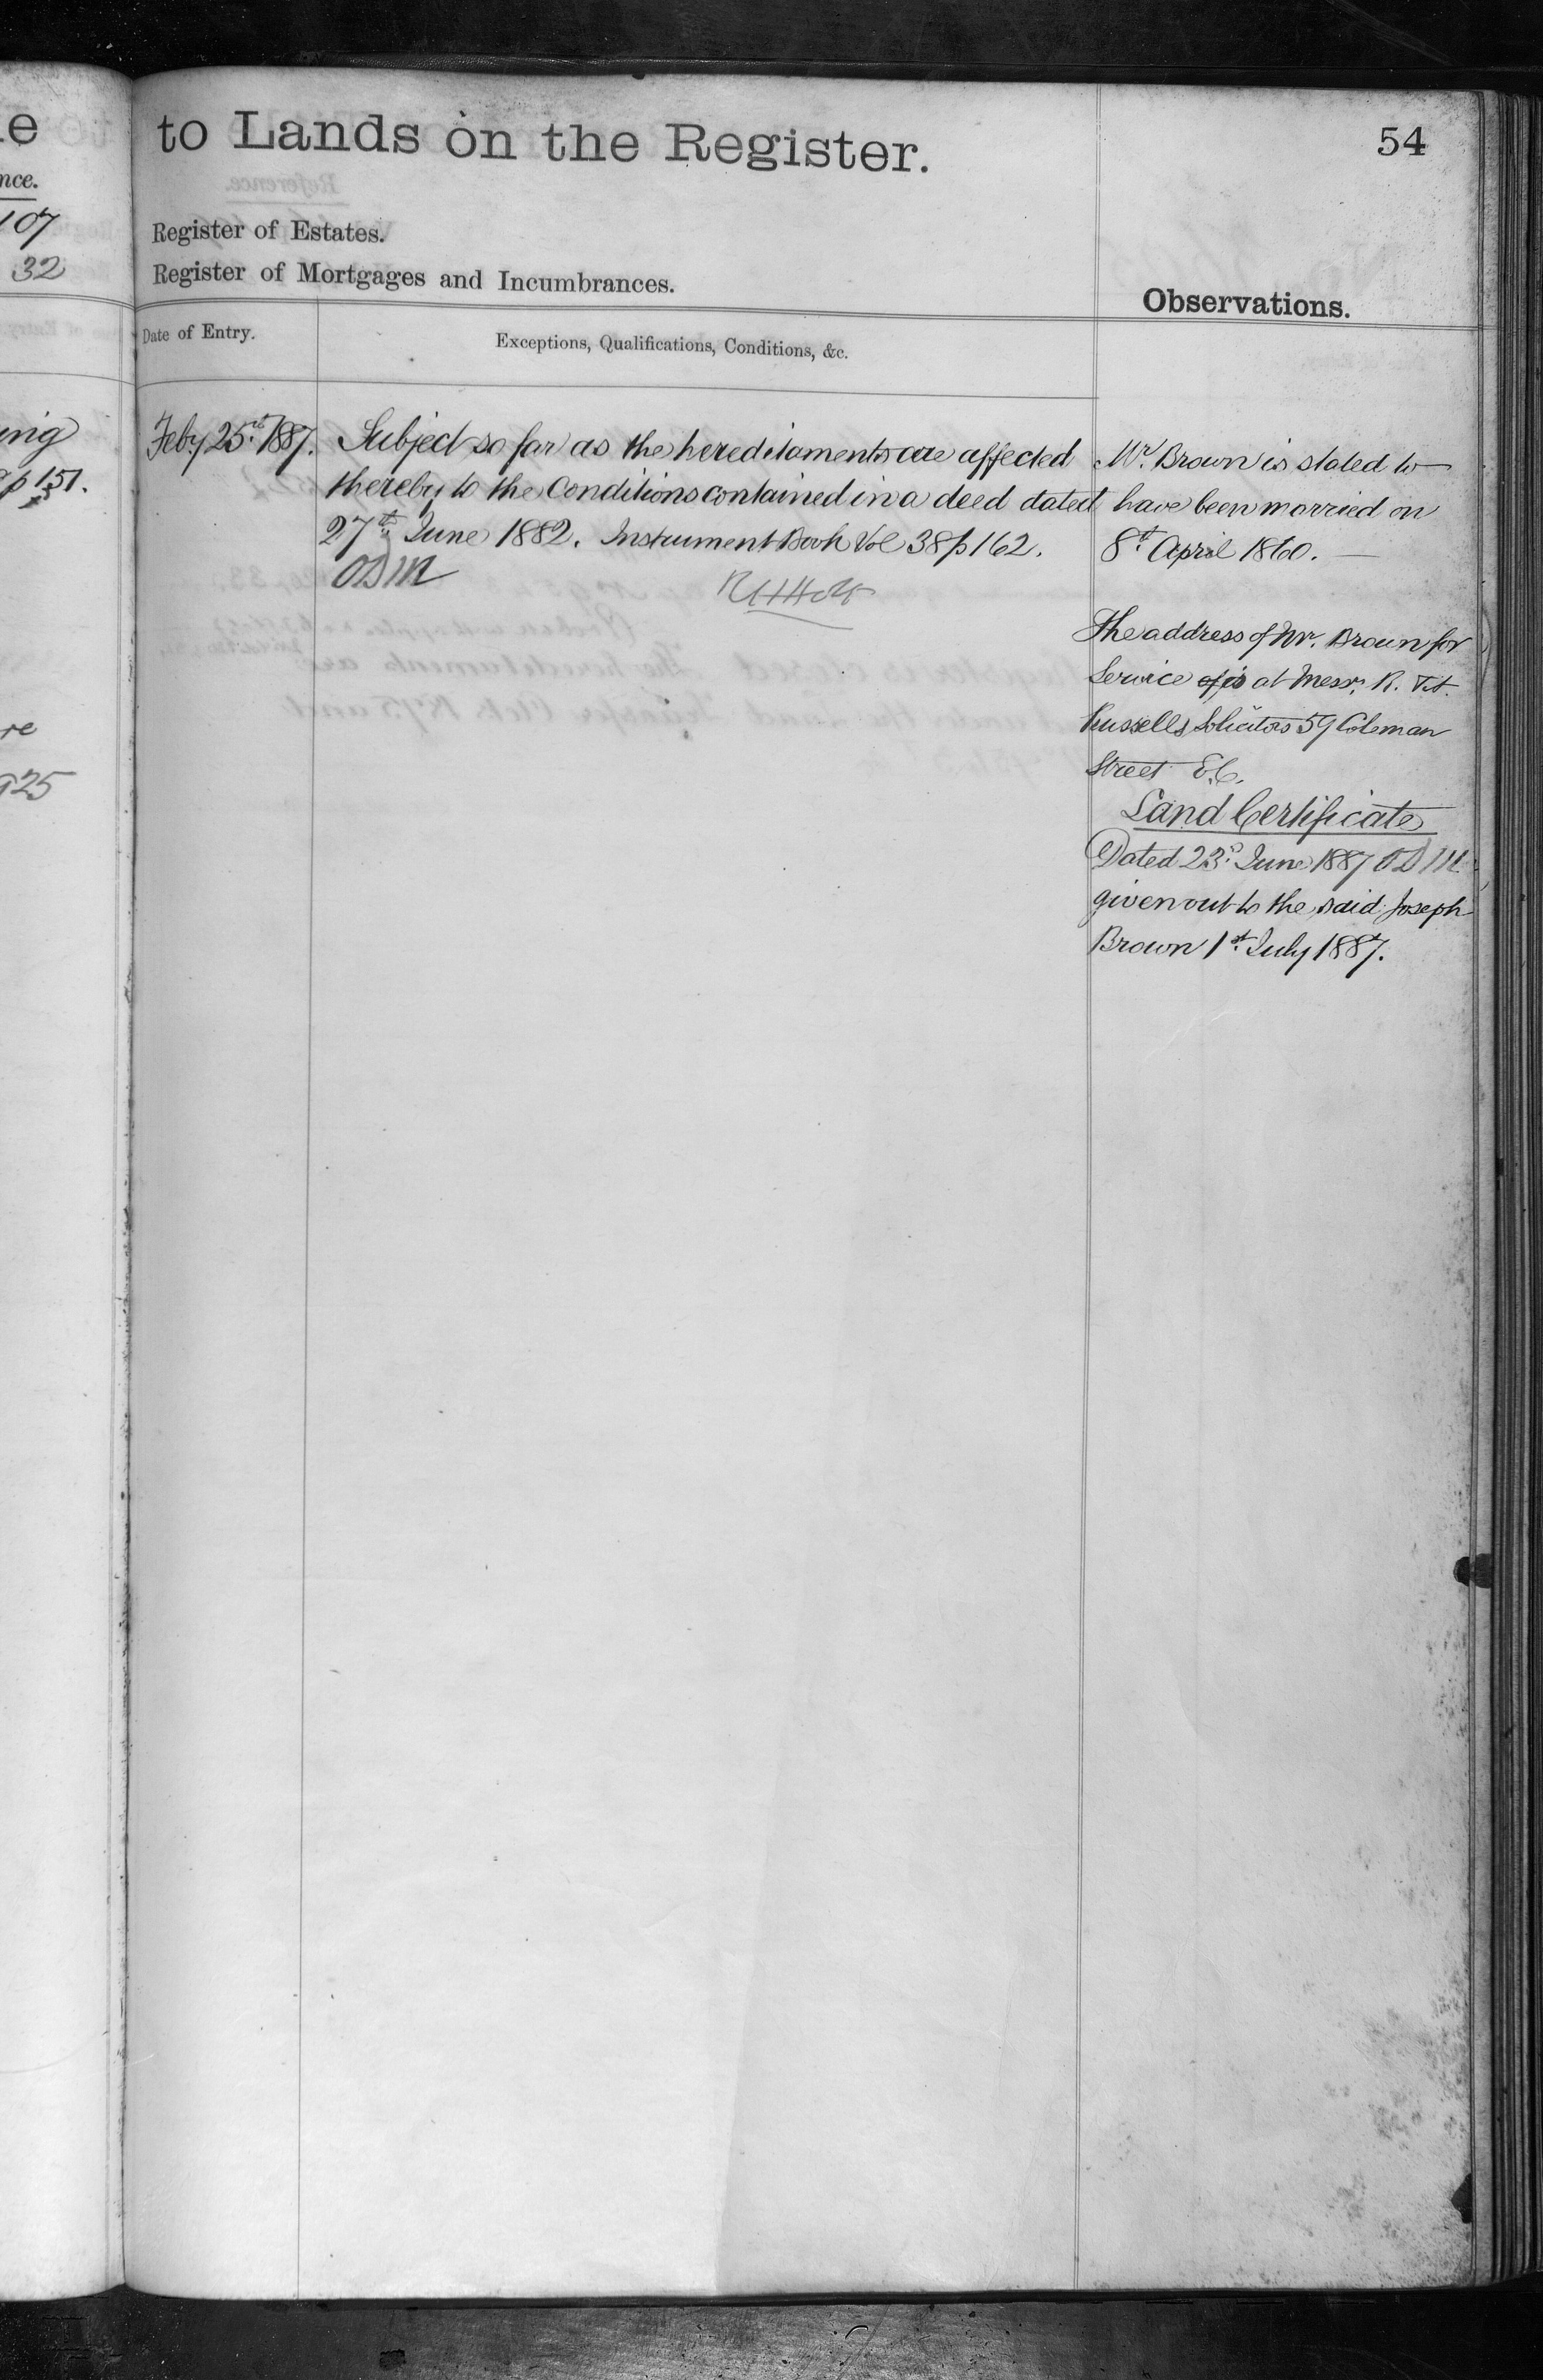 to Lands on the Register.
54
nce.
107
32
Register of Estates.
Register of Mortgages and Incumbrances.
Observations.
Date of Entry.
Exceptions, Qualifications, Conditions, &c.
p 151.
925
Feby. 25th 1887.
Subject so far as the hereditaments are affected
thereby to the Conditions contained in a deed dated
27th June 1882. Instrument Book Vol 38 p 162.
ODM
Mr. Brown is stated to
have been married on
8th April 1860.
The address of Mr. Brown for
Service of is at Messrs. R. & A.
Russells Solicitors 59 Coleman
Street E.C.
Land Certificate
Dated 23rd June 1887 ODM
given out to the said Joseph
Brown 1st July 1887.